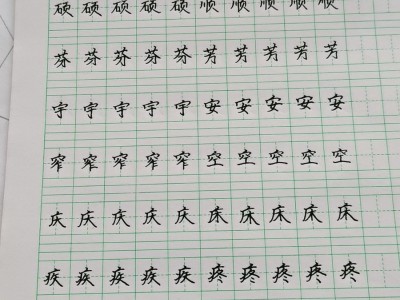 硕硕硕硕硕顺顺顺顺顺
芬芬芬芬芬芳芳芳芳芳
宇宇宇宇宇安安安安安
窄窄窄窄窄空空空空空
庆庆庆庆庆床床床床床
疾疾疾疾疾疼疼疼疼疼